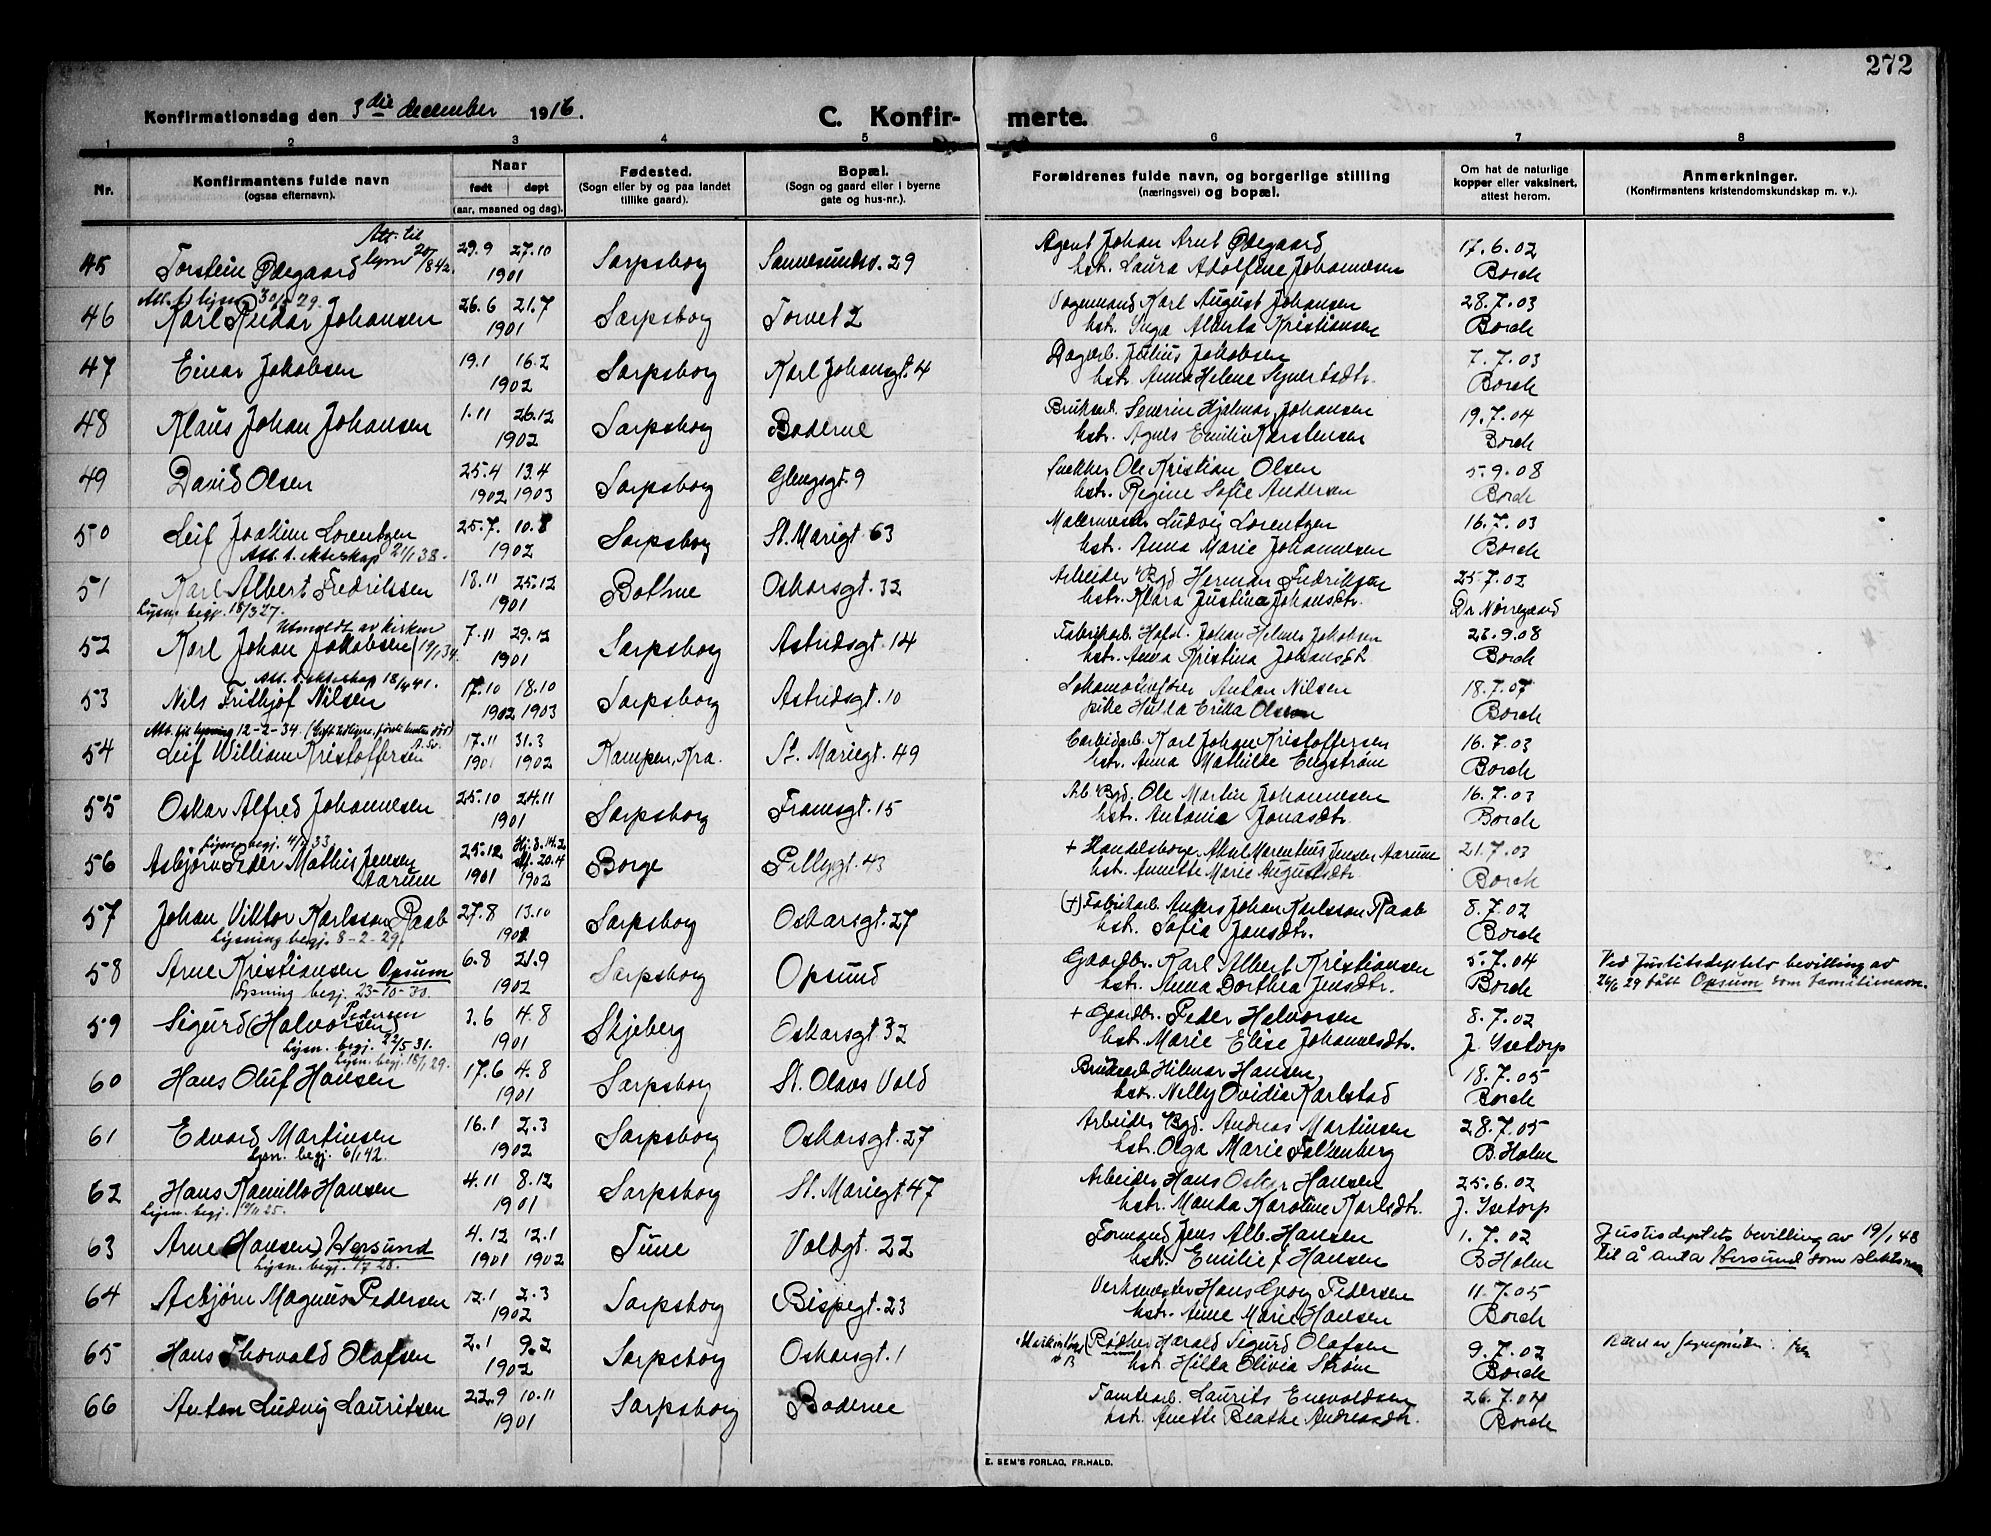 272
Konfirmationsdag den 3die december 1916.
C. Konfir- merte.
1 2 3 4 5 6 7 8
Nr.
Konfirmantens fulde navn
(ogsaa efternavn).
Naar
født døpt
(aar, maaned og dag).
Fødested.
(Sogn eller by og paa landet
tillike gaard).
Bopæl.
(Sogn og gaard eller i byerne
gate og hus-nr.).
Forældrenes fulde navn, og borgerlige stilling
(næringsvei) og bopæl.
Om hat de naturlige
kopper eller vaksinert,
attest herom.
Anmerkninger.
(Konfirmantens kristendomskundskap m. v.).
Att. til
lysn 20/8 42. 29.9 27.10 Agent Johan Arnt Ødegaard 17.6.02
45 Torstein Ødegaard 1901 Sarpsborg Sannesundsv. 29 hstr. Laura Adolfine Johannesen Borch
Att. t. lysn 29. 26.6 21.7 Vognmand Karl August Johansen 28.7.03
46 Karl Reidar Johansen 1901 Sarpsborg Torvet 2 hstr. Inga Kristiansen Borch
47 Einar Jakobsen 19.1 16.2 Sarpsborg Karl Johansgt. 4 Dagarb. Julius Jakobsen 7.7.03
1902 hstr. Anna Helene Syvertsdtr. Borch
48 Klaus Johan Johansen 1.11 26.12 Sarpsborg Boderne Bruksarb. Severin Hjalmar Johansen 19.7.04
1902 hstr. Agnes Emilie Karstensen Borch
49 David Olsen 25.4 13.4 Sarpsborg Glengsgt. 9 Snekker Ole Kristian Olsen 5.9.08
1902 1903 hstr. Regine Sofie Andersen Borch
50 Leif Joakim Lorentzen 25.7. 10.8 Sarpsborg St. Mariegt. 63 Malermester Ludvig Lorentzen 16.7.03
Att. t. ekteskap 21/1 38. 1902 hstr. Anna Marie Johannesen Borch
51 Karl Albert Fredriksen 18.11 25.12 Bottne Oskarsgt. 32 Arbeider Bgd Herman Fredriksen 25.7.02
Lysn. begj. 18/3 27. 1901 hstr. Klara Justina Johansdtr. Dr Nørregaard
Utmeldt av kirken
52 Karl Johan Jakobsen (19/1 34. 7.11 29.12 Sarpsborg Astridsgt. 14 Fabrikarb. Hafsl. Johan Helmer Jakobsen 21.9.08
1901 hstr. Anna Kristina Johansdtr. Borch
Att. t. ekteskap 18/4 41.
53 Nils Fridtjof Nilsen 17.10 18.10 Sarpsborg Astridsgt. 10 Lokomotivfører Anton Nilsen 18.7.07
1902 1903 pike Hulda Erika Olsen Borch
Att. til lysning 12-2-34.
54 Leif William Kristoffersen 17.11 31.3 Kampen, Kra. St. Mariegt. 49 Carbidarb. Karl Johan Kristoffersen 16.7.03
1901 1902 hstr. Anna Mathilde Engstrøm Borch
55 Oskar Alfred Johannesen 25.10 24.11 Sarpsborg Framsgt. 15 Arb. Bgd. Ole Martin Johannesen 16.7.03
1901 hstr. Antonie Jonasdtr Borch
Lysn. begj. 33
56 Asbjørn Peder Mathis Jensen 25.12 Hj. d. 14.2 Borge Pellygt. 43 + Handelsbore. Aksel Marentius Jensen Aarum 21.7.03
Aarum 1901 st. 20.4 1902 hst. Annette Marie Augustsdtr Borch
57 Johan Viktor Karlsson Raab 27.8 13.10 Sarpsborg Oskarsgt. 27 (+) Fabrikarb. Anders Johan Karlsson Raab 8.7.02
Lysning begj. 8-2-29. 1901 hst. Sofia Jonsdtr. Borch
58 Arne Kristiansen Opsum 6.8 21.9 Sarpsborg Opsund Gaardbr. Karl Albert Kristiansen 5.7.04 Ved Justitsdeptets bevilling av
Lysning begj. 23-10-30. 1902 hstr. Anna Dorthea Jensdtr. Borch 26/6 29 fått Opsum som familienavn.
59 Sigurd (Halvorsen) Pedersen 3.6 4.8 Skjeberg Oskarsgt. 32 + Gaardbr. Peder Halvorsen 8.7.02
Lysn. begj. 22/5 31. 1901 hst. Marie Elise Johannesdtr. J. Isetorp
Lysn. begj. 18/1 29.
60 Hans Oluf Hansen 17.6 4.8 Sarpsborg St. Olavs Vold Bruksarb Hilmar Hansen, 18.7.05
1901 hstr. Nelly Ovidia Karlstad Borch
61 Edvard Martinsen 16.1 2.3 Sarpsborg Oskarsgt. 27 Arbeider Bgd. Andreas Martinsen 28.7.05
Lysn. begj. 6/1 42. 1902 hst. Olga Marie Falkenberg B. Holm
62 Hans Kamillo Hansen 4.11 8.12 Sarpsborg St. Mariegt 47 Arbeider Hans Oskar Hansen 25.6.02
Lysn. begj. 25. 1901 hstr. Manda Karoline Karlsdtr. J. Isetorp
63 Arne (Hansen) Hersund 4.12 12.1 Tune Voldgt. 22 Formand Jens Alb. Hansen 1.7.02 Justisdeptets bevilling av 19/1 48
Lysn. begj. 28. 1901 1902 hst. Emilie f Hansen B Holm til å anta Hersund som slektsnavn
64 Asbjørn Magnus Pedersen 12.1 2.3 Sarpsborg Bispegt. 23 Verkmester Hans Georg Pedersen 11.7.05
1902 hstr. Anne Marie Hansen Borch
65 Hans Thorvald Olafsen 2.1 9.2 Sarpsborg Oskarsgt. 1 (Rødker) Harald Sigurd Olafsen 9.7.02
1902 hst. Hilda Olivia Strøm Borch
66 Anton Ludvig Lauritsen 22.9 10.11 Sarpsborg Boderne Tomtearb. Laurits Enevoldsen 26.7.04
1901 hstr. Anette Beathe Andreasdtr. Borch
E. SEM'S FORLAG, FR.HALD.